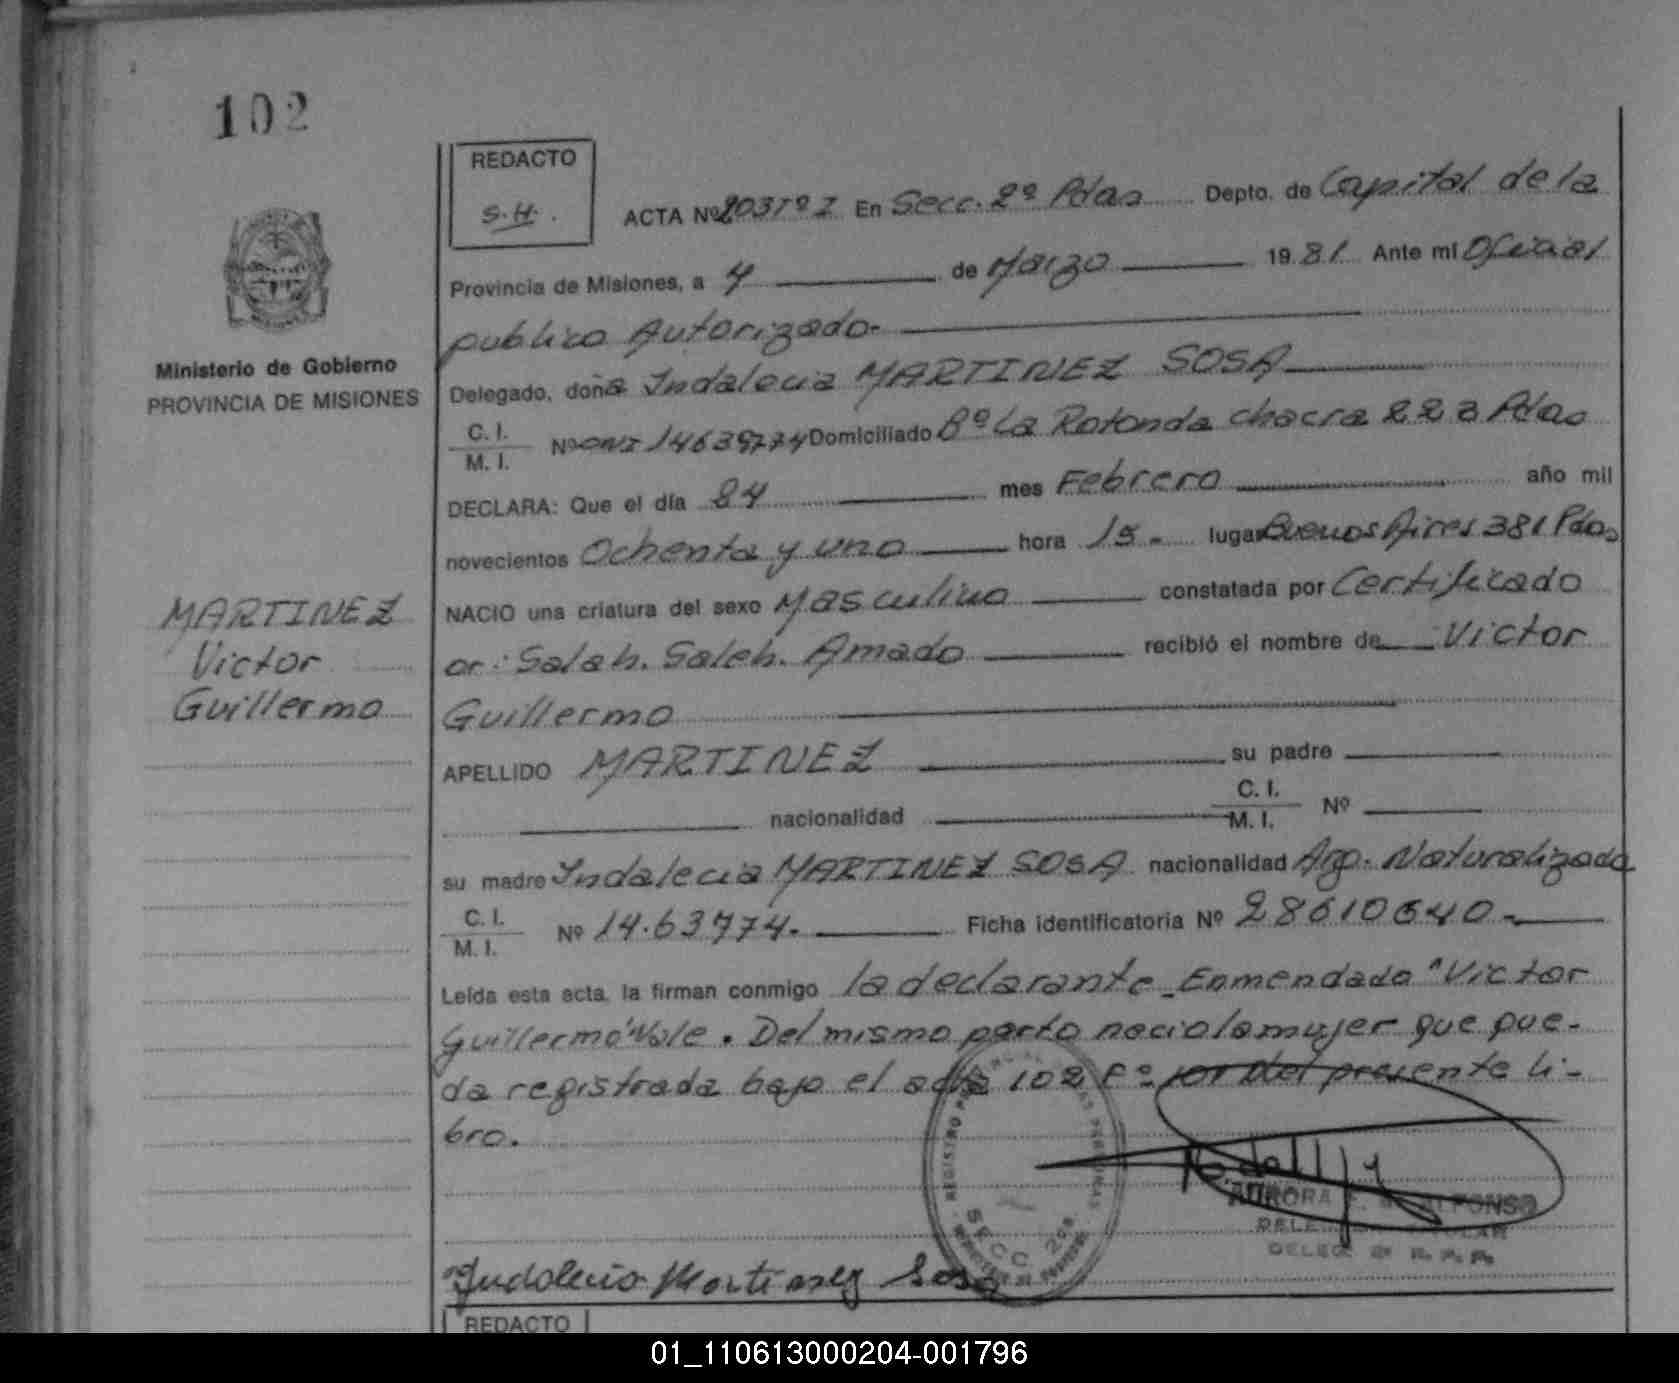 102
REDACTO
S.H.
ACTA Nº 203 Tº I En Secc. 2º Pdas Depto. de Capital de la
Provincia de Misiones, a 4 de Marzo 1981 Ante mi Oficial
publico Autorizado-
Ministerio de Gobierno
PROVINCIA DE MISIONES
Delegado, doña Indalecia MARTINEZ SOSA
C. I.
M. I.
Nº DNI Domiciliado Bº La Rotonda chacra Pdas
DECLARA: Que el día 24 mes Febrero año mil
novecientos Ochenta y uno hora 15.- lugar Buenos Aires 381 Pdas
NACIO una criatura del sexo Masculino constatada por Certificado
MARTINEZ
Victor
Guillermo
Dr: Salah. Saleh. Amado recibió el nombre de Victor
Guillermo
APELLIDO MARTINEZ su padre
nacionalidad C. I.
M. I. Nº
su madre Indalecia MARTINEZ SOSA nacionalidad Arg. Naturalizada
C. I.
M. I.
Nº 14.63774. Ficha identificatoria Nº 28610640.-
Leída esta acta, la firman conmigo la declarante_ Enmendado "Victor
Guillermo" Vale. Del mismo parto nacio la mujer que que-
da registrada bajo el acta 102 Fº 101 del presente li-
bro.
REGISTRO
SECC. 2da.
AURORA ALFONSO
Indalecia Martinez Sosa
REDACTO
01_110613000204-001796